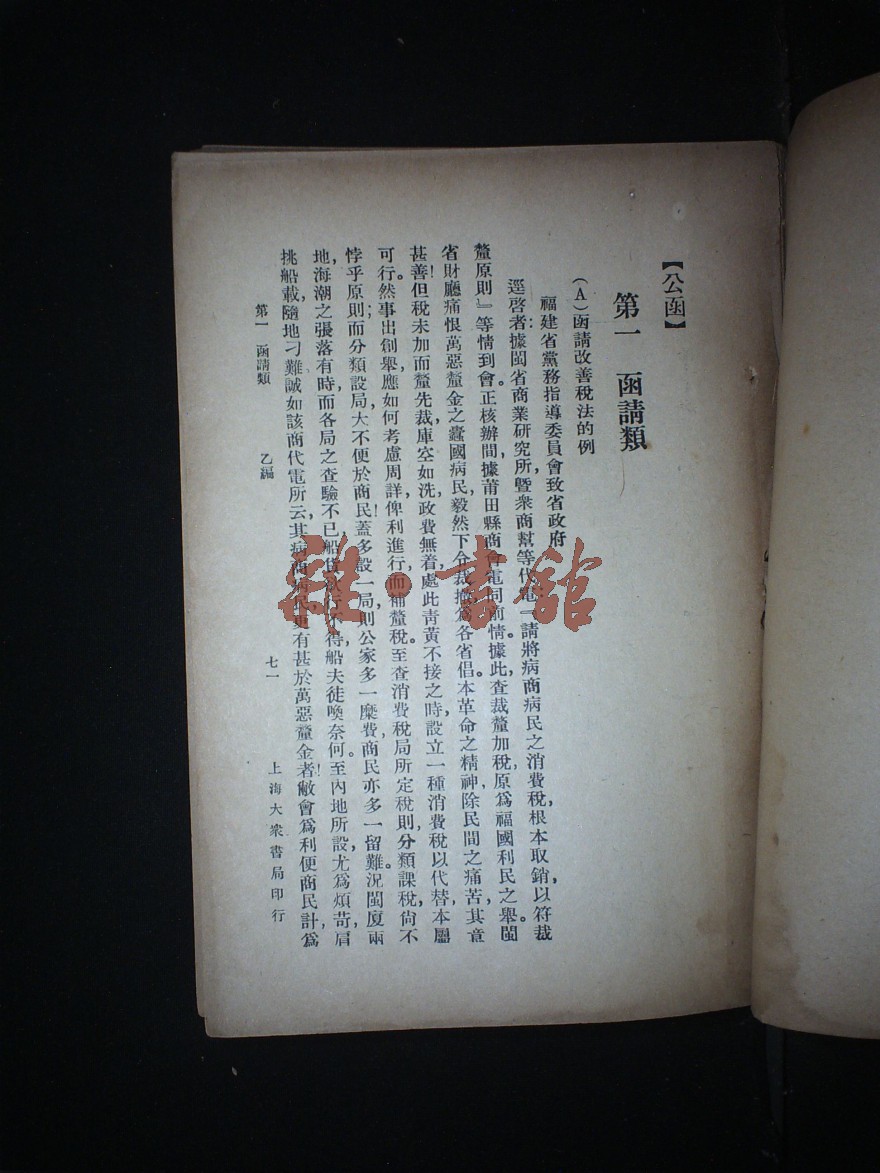 【公函】
第一　函請類
(A)函請改善稅法的例
福建省黨務指導委員會致省政府
逕啓者：據閩省商業研究所暨衆商幫等代電『請將病商病民之消費稅，根本取銷，以符裁
釐原則』等情到會。正核辦間，據莆田縣商會電同前情。據此，查裁釐加稅，原爲福國利民之舉。閩
省財廳痛恨萬惡釐金之蠹國病民，毅然下令裁撤，爲各省倡。本革命之精神，除民間之痛苦，其意
甚善！但稅未加而釐先裁，庫空如洗，政費無着，處此青黃不接之時，設立一種消費稅以代替，本屬
可行。然事出創舉，應如何考慮周詳，俾利進行，而補釐稅。至查消費稅局所定稅則，分類課稅，尙不
悖乎原則；而分類設局，大不便於商民！蓋多設一局，則公家多一糜費，商民亦多一留難。況閩廈兩
地，海潮之張落有時，而各局之查驗不已，船貨欲行不得，船夫徒喚奈何。至內地所設，尤爲煩苛，肩
挑船載，隨地刁難，誠如該商代電所云，其病商病民更有甚於萬惡釐金者！敝會爲利便商民計，爲
第一　函請類　乙編　七一　上海大衆書局印行
雜·書館